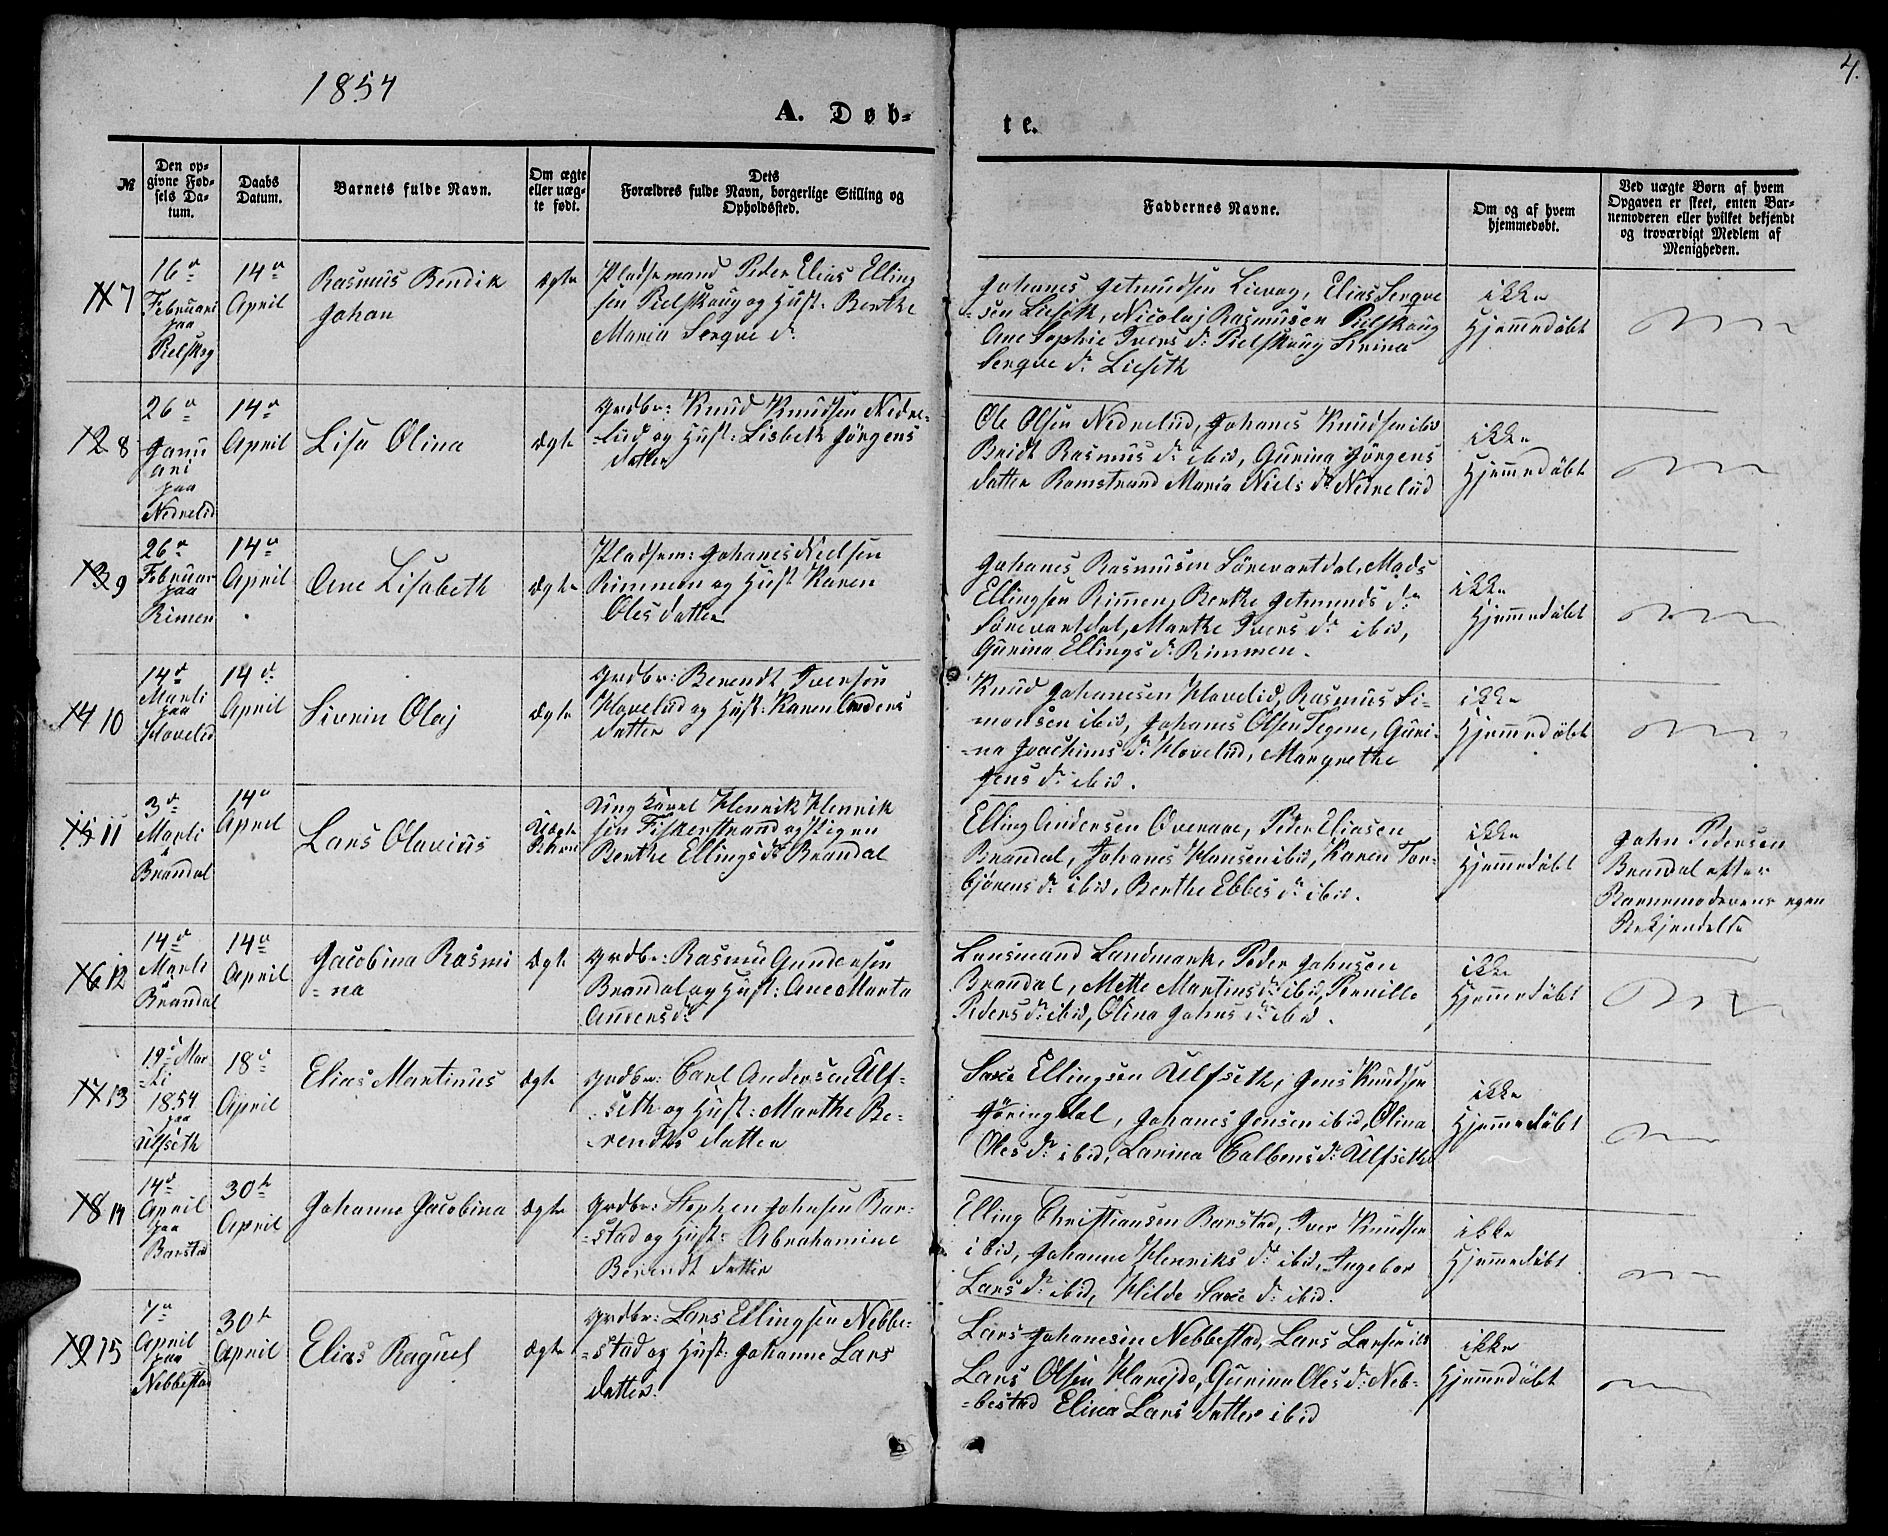 1854
4.
A. Døb-
te.
№
Den op-
givne Fød-
sels Da-
tum.
Daabs
Datum.
Barnets fulde Navn.
Om ægte
eller uæg-
te født.
Dets
Forældres fulde Navn, borgerlige Stilling og
Opholdssted.
Faddernes Navne.
Om og af hvem
hjemmedøbt.
Ved uægte Børn af hvem
Opgaven er skeet, enten Bar-
nemoderen eller hvilket bekjendt
og troværdigt Medlem af
Menigheden.
11 7
16de
Februari
paa
Pielskog
14de
April
Rasmus Bendik
Johan
Ægte
Pladsemand Peder Elias Elling
sen Pielskoug og Hust: Berthe
Maria Serque dr
Johanes Getmundsen Lievag, Elias Serqve
-sen Lieseth, Nicolaj Rasmusen Pielskoug
Ane Sophie Ivers dr Pielskoug Sirina
Serqve dr Lieseth
ikke
Hjemmedøbt
12 8
26de
Janu
ari
paa
Nedrelid
14de
April
Lisa Olina
Ægte
Grdbr: Knud Knudsen Nedre-
-liid og Hust: Lisbeth Jørgens
datter
Ole Olsen Nedreliid, Johanes Knudsen ibid
Bridt Rasmus dr ibid, Gurina Jørgens
datter Ramstrand Maria Niels dr Nedreliid
ikke
Hjemmedøbt
13 9
26de
Februar
paa
Rimen
14de
April
Ane Lisabeth
Ægte
Pladsem: Johanes Nielsen
Rimmen og Hust Karen
Olesdatter
Johanes Rasmusen Sørevartdal, Mads
Ellingsen Rimen, Berthe Getmunds dr
Sørevartdal, Marthe Ivers dr ibid,
Gurina Ellings dr Rimmen.
ikke
Hjemmedøbt
14 10
14de
Marti
paa
Hovelid
14de
April
Sivrin Olaj
Ægte
Grdbr: Berendt Iversen
Hoveliid og Hust: Karen Anders
datter
Knud Johanesen Hovelid, Rasmus Si-
monsen ibid, Johanes Olsen Tegene, Guri-
-na Joachims dr Hoveliid, Margrethe
Jens dr ibid.
ikke
Hjemmedøbt
15 11
3de
Marti
Brandal
14de
April
Lars Olavius
Uægte
Barn
Ungkarl Henrik Henrik
sen Fiskerstrand og Pigen
Berthe Ellings dr Brandal
Elling Andersen Overaae, Peder Eliasen
Brandal, Johanes Hansen ibid, Karen Tor-
bjørens dr ibid, Berthe Ebbes dr ibid.
ikke
Hjemmedøbt
John Pedersen
Brandal efter
Barnemoderens egen
Bekjendelse
16 12
14de
Marti
Brandal
14de
April
Jacobina Rasmi
-na
Ægte
Grdbr: Rasmus Gundersen
Brandal og Hust: Ane Marta
Anders dr
Lensmand Landmark, Peder Johnsen
Brandal, Mette Martins dr ibid, Pernille
Peders dr ibid, Olina Johns dr ibid.
ikke
Hjemmedøbt
17 13
19de Mar
-ti
1854
paa
Ulfseth
18de
April
Elias Martinus
Ægte
Grdbr: Carl Andersen Ulf-
-seth og Hust: Marthe Be-
-rendts datter
Saxe Ellingsen Ulfseth, Jens Knudsen
Jøringdal, Johanes Jensen ibid, Olina
Oles dr ibid, Larina Colbens dr Ulfseth
ikke
Hjemmedøbt
18 14
14de
April
paa
Barstad
30te
April
Johanne Jacobina
Ægte
Grdbr: Stephen Johnsen Bar-
-stad og Hust: Abrahamine
Berendt datter
Elling Christiansen Barstad, Iver Knudsen
ibid, Johanne Henriks dr ibid, Ingebor
Lars dr ibid, Hilde Saxe dr ibid.
ikke
Hjemmedøbt
19 15
7de
April
paa
Nebbestad
30te
April
Elias Raguel
Ægte
Grdbr: Lars Ellingsen Nebbe-
-stad og Hust: Johanne Lars
datter
Lars Johanesen Nebbestad, Lars Larsen ibd
Lars Olsen Hareide, Gurina Oles dr Neb-
-bestad Elina Lars datter ibid
ikke
Hjemmedøbt